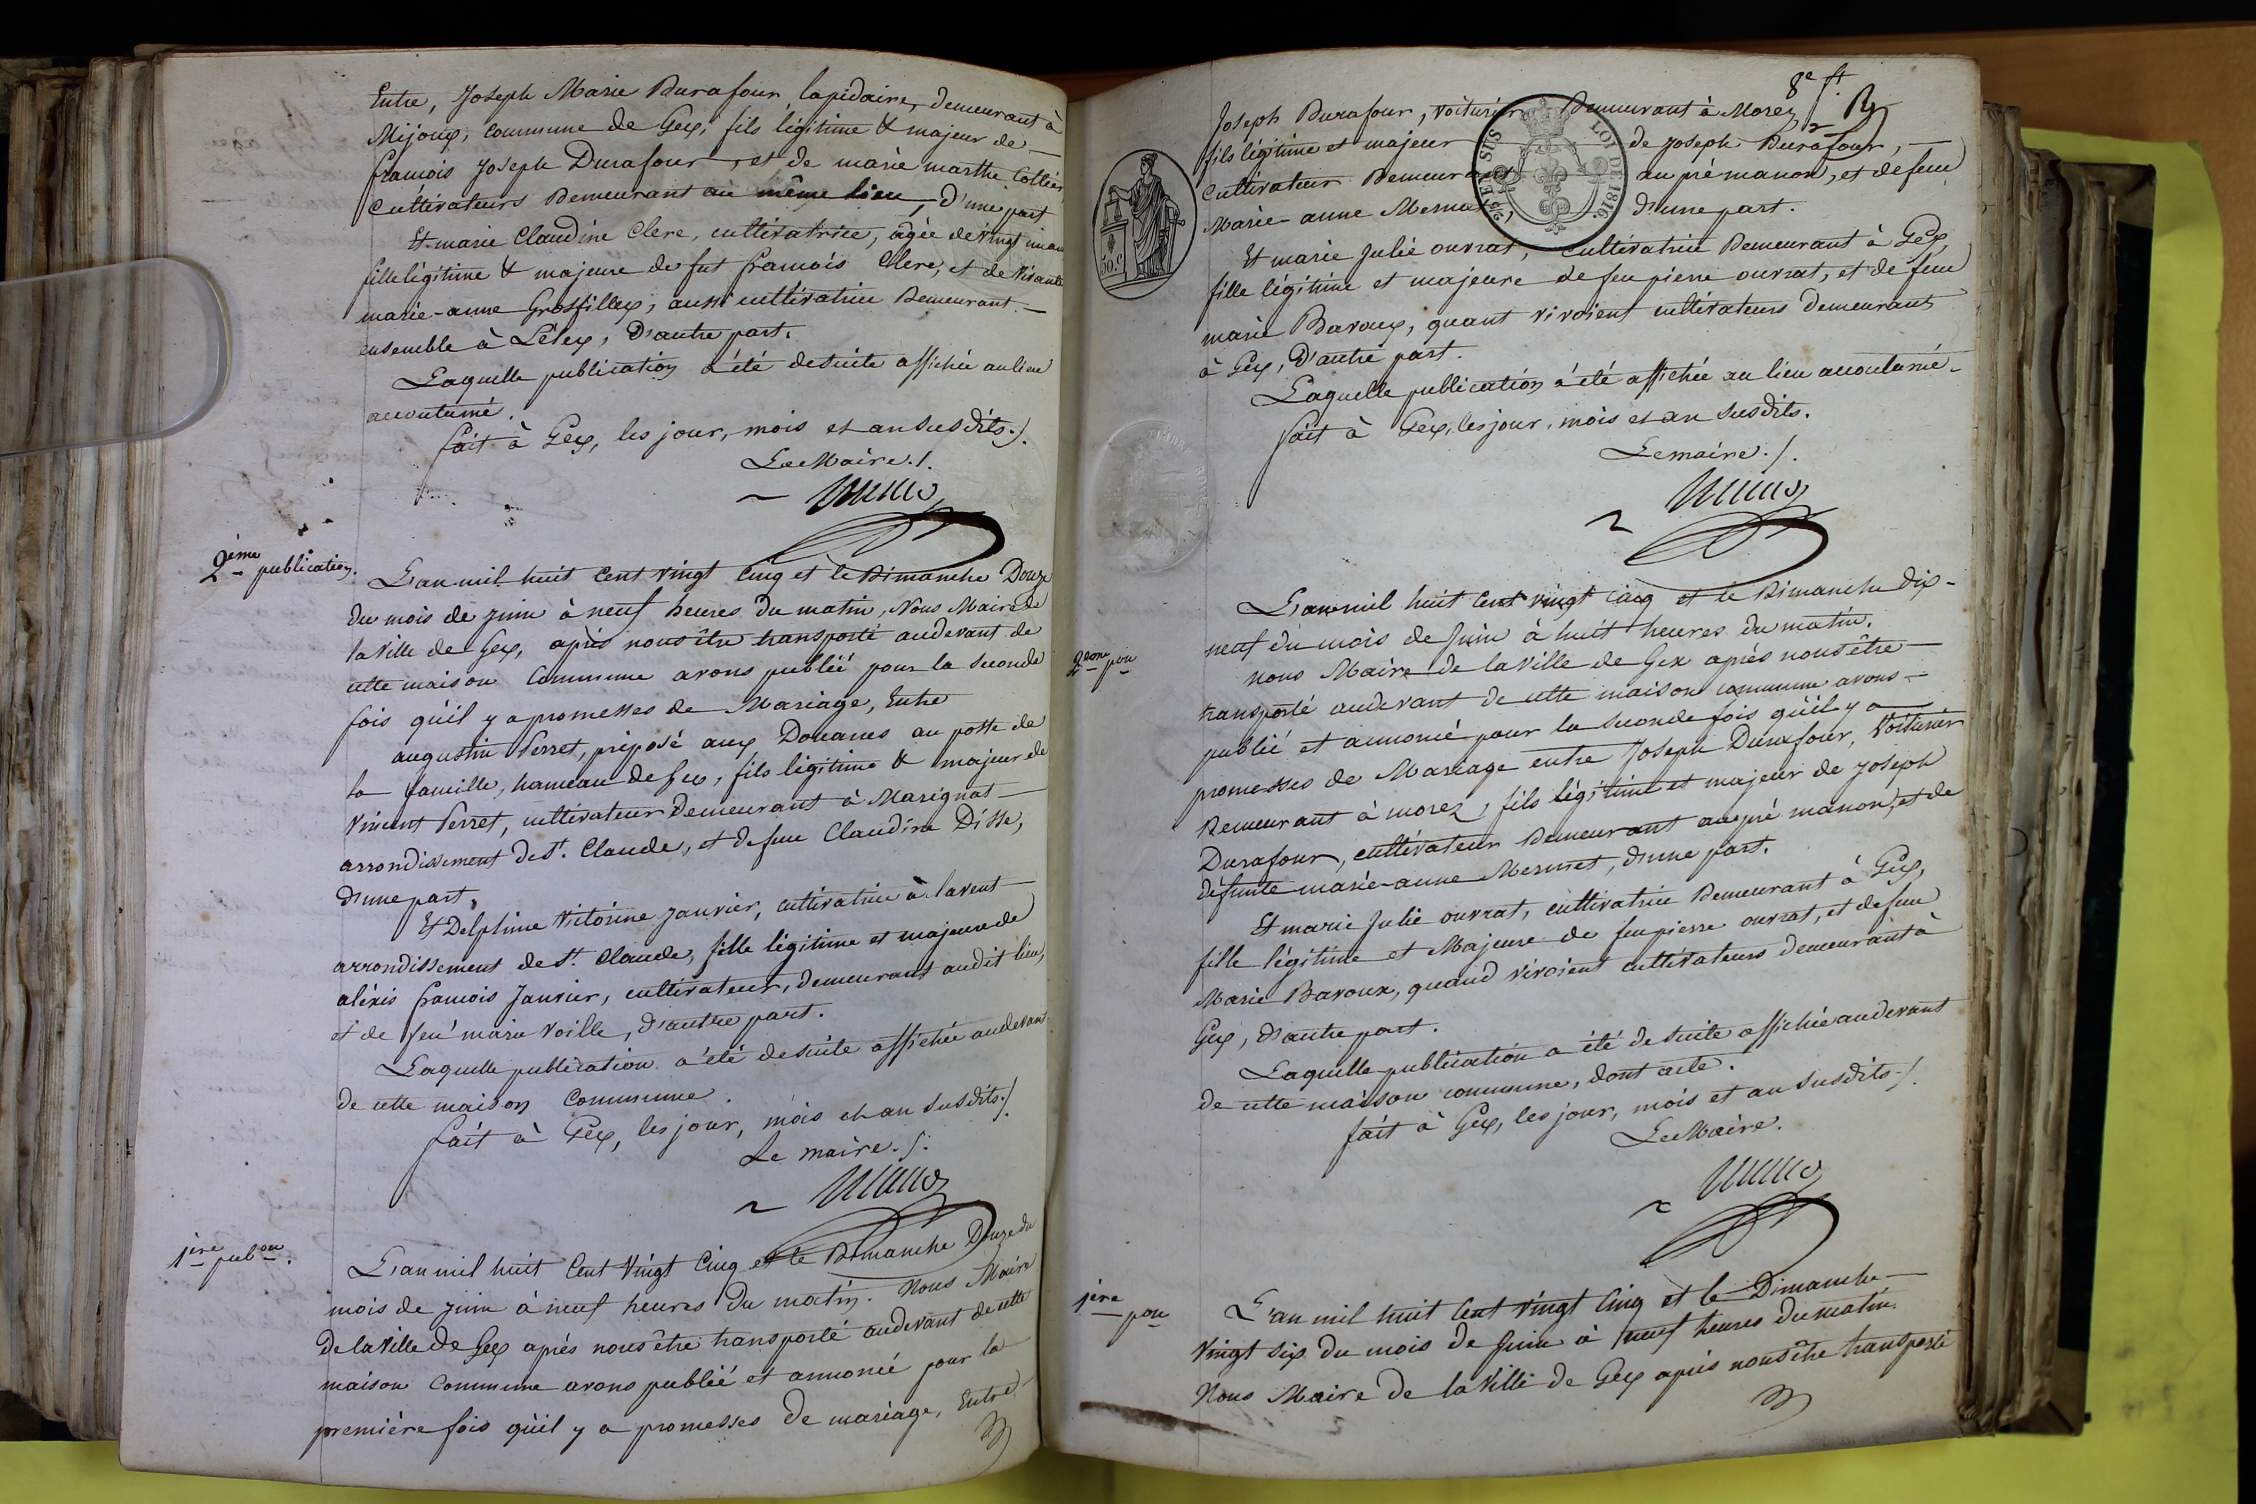 Entre, Joseph Marie Durafour lapidaire, demeurant à
Mijoux, commune de Gex, fils légitime & majeur de
francois Joseph Durafour, et de marie marthe
cultivateurs Demeurant au même lieu, D'une part
Et marie Claudine Clerc, cultivatrice, agée de vingt un an
fille légitime & majeure de fut francois Clerc, et de vivante
marie-anne Grosfillex, aussi cultivatrice Demeurant
ensemble à Lélex, D'autre part.
Laquelle publication a été desuite affichée au lieu
accoutumé.
fait à Gex, les jour, mois et an susdits./.
Le Maire./.
2ème publication.
L'an mil huit Cent vingt Cinq et le Dimanche Douze
du mois de juin à neuf heures du matin, Nous Maire de
la ville de Gex, après nous être transporté audevant de
cette maison Commune avons publié pour la seconde
fois qu'il y a promesses de Mariage, Entre
augustin Perret, préposé aux Douanes au poste de
la famille, hameau de Gex, fils légitime & majeur de
Vincent Perret, cultivateur Demeurant à Marignat
arrondissement de St. Claude, et de feue Claudine Disse,
D'une part,
Et Delphine Victorine Janvier, cultivatrice à lavent
arrondissement de St. Claude, fille légitime et majeure de
aléxis francois Janvier, cultivateur, demeurant audit lieu,
et de feu marie Voille, d'autre part.
Laquelle publication a été desuite affichée audevant
de cette maison Commune.
fait à Gex, les jour, mois et an susdits./.
Le maire./.
1ère pubon.
L'an mil huit Cent Vingt Cinq et le Dimanche Douze du
mois de juin à neuf heures Du matin. Nous Maire
De la ville de Gex après nous être transporté audevant de cette
maison Commune avons publié et annoncé pour la
première fois qu'il y a promesses de mariage, Entre
8e ft.
Joseph Durafour, voiturier Demeurant à Morez
fils légitime et majeur de Joseph Durafour,
Cultivateur Demeurant au pré manon, et de feue
Marie-anne D'une part.
25 EN SUS
LOI DE 1816.
50.C
Et marie Julie ouvrat, cultivatrice Demeurant à Gex,
fille légitime et majeure de feu pierre ouvrat, et de feue
marie Baroux, quant vivoient cultivateurs demeurants
à Gex, D'autre part.
Laquelle publication a été affichée au lieu accoutumé
fait à Gex, les jour, mois et an susdits.
Le maire./.
2ème pon
L'an mil huit Cent vingt cinq et le Dimanche dix-
neuf du mois de Juin à huit heures du matin.
nous Maire de la ville de Gex après nous être
transporté audevant de cette maison commune avons
publié et annoncé pour la seconde fois qu'il y a
promesses de Mariage entre Joseph Durafour, Voiturier
Demeurant à morez, fils légitime et majeur de Joseph
Durafour, cultivateur Demeurant au pré manon, et de
défunte marie-anne Mermet, d'une part.
Et marie Julie ouvrat, cultivatrice Demeurant à Gex,
fille légitime et Majeure de feu pierre ouvrat, et de feue
Marie Baroux, quand vivoient cultivateurs demeurant à
Gex, D'autre part.
Laquelle publication a été De suite affichée audevant
de cette maison commune, dont acte.
fait à Gex, les jour, mois et an susdits./.
Le Maire.
1ère pon
L'an mil huit Cent vingt Cinq et le Dimanche
Vingt six du mois de Juin à neuf heures du matin.
Nous Maire de la Ville de Gex après nous être transporté